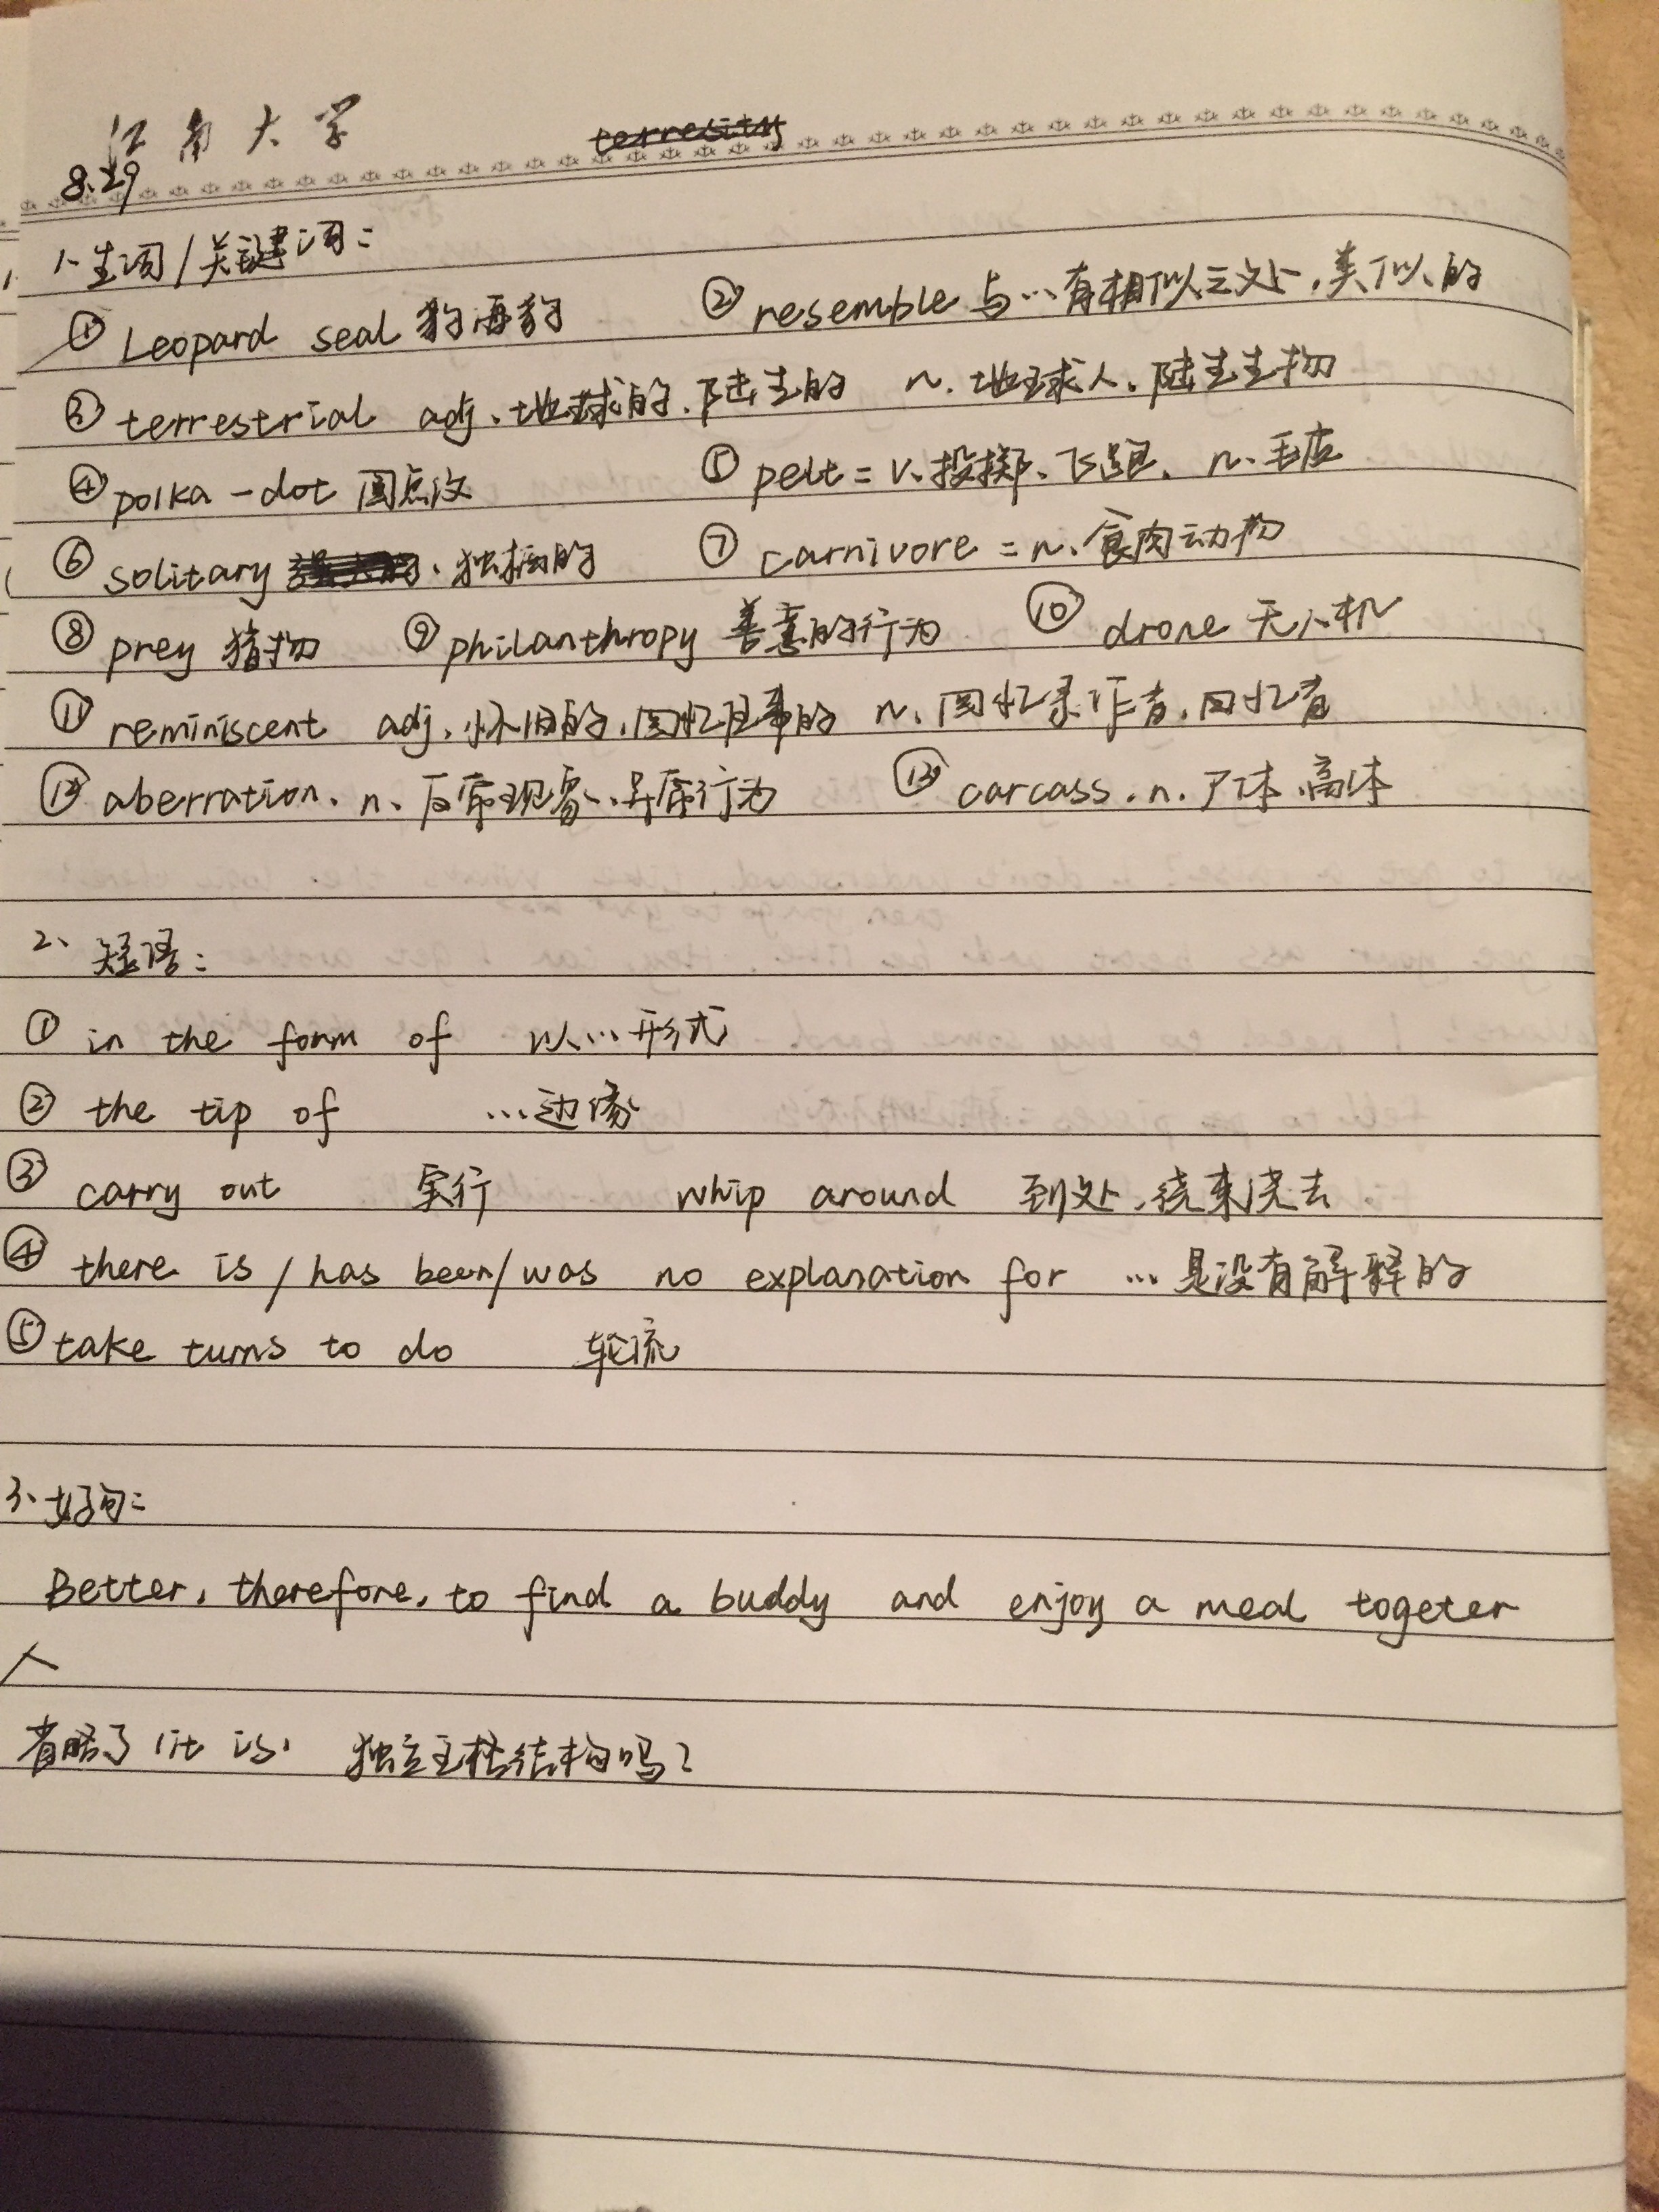 江南大学
8.29
1、生词/关键词：
① Leopard seal 豹海豹 ② resemble 与…有相似之处,类似的
③ terrestrial adj.地球的、陆生的 n.地球人、陆生生物
④ polka-dot 圆点纹 ⑤ pelt = v.投掷、飞跑、n.毛皮
⑥ solitary 、独居的 ⑦ carnivore = n.食肉动物
⑧ prey 猎物 ⑨ philanthropy 善意的行为 ⑩ drone 无人机
⑪ reminiscent adj.怀旧的,回忆往事的 n.回忆录作者,回忆者
⑫ aberration. n.反常现象、异常行为 ⑬ carcass. n.尸体
2、短语：
① in the form of 以…形式
② the tip of …边缘
③ carry out 实行 whip around 到处,绕来绕去
④ there is/has been/was no explanation for …是没有解释的
⑤ take turns to do 轮流
3、好句：
Better, therefore, to find a buddy and enjoy a meal togeter
省略了 'it is' 独立主格结构吗？